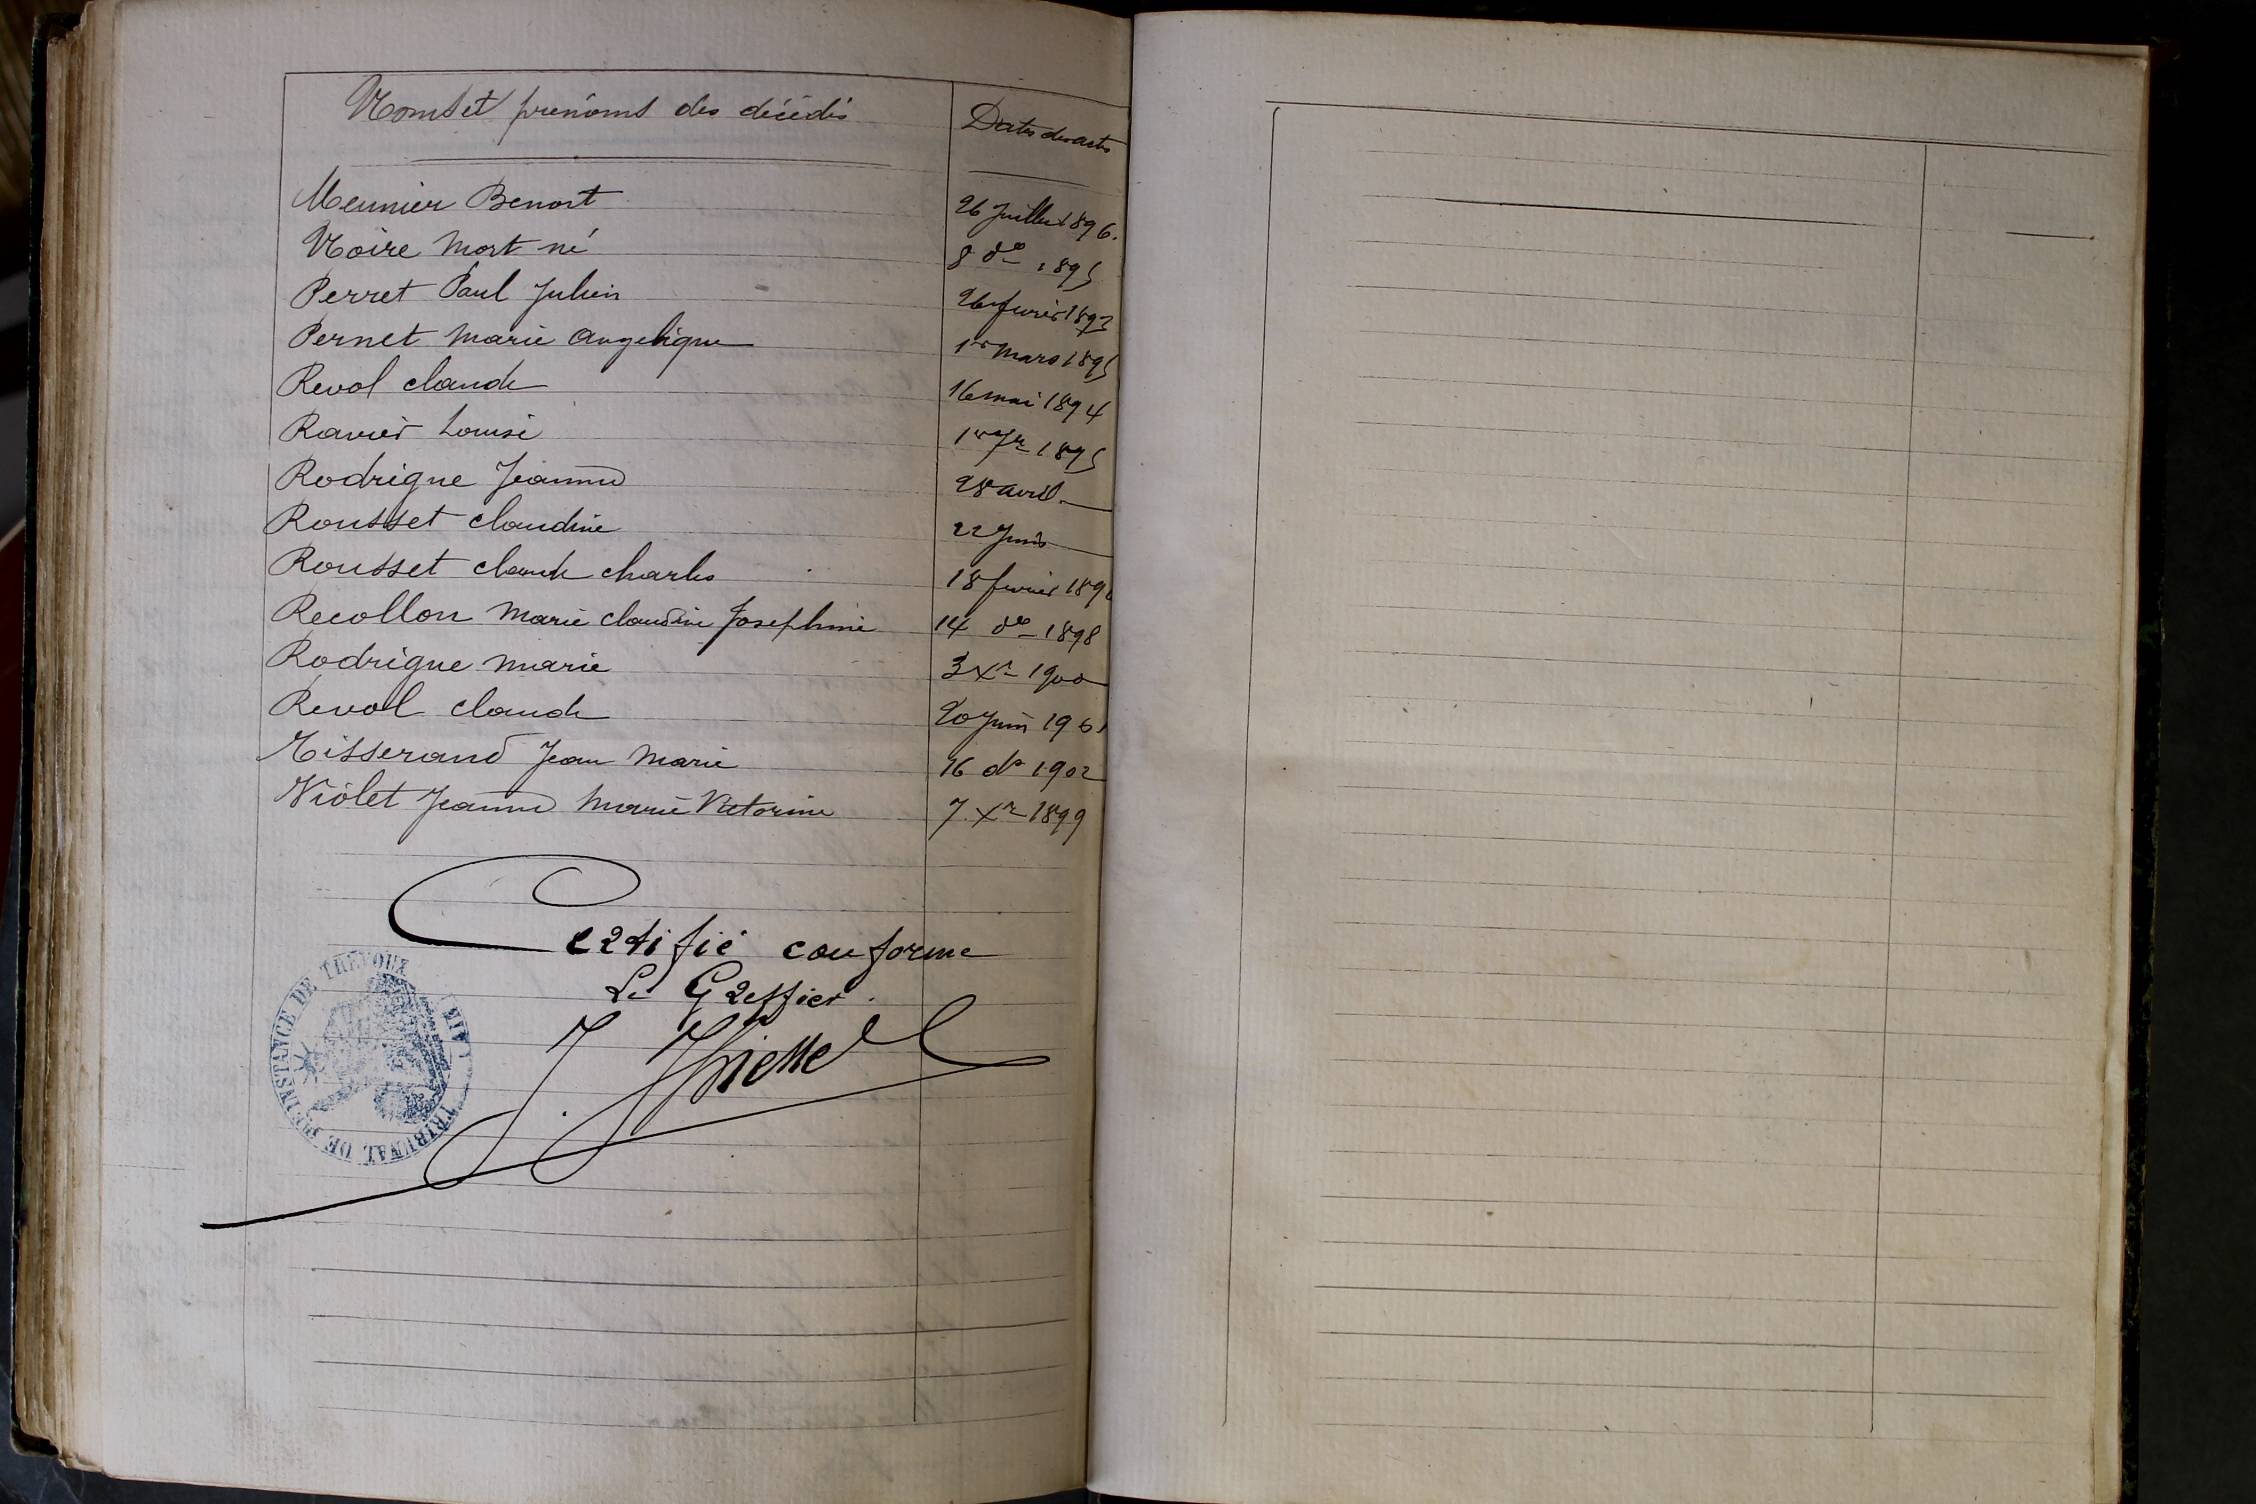 Noms et prénoms des décédés Dates des actes
Meunier Benoit 26 Juillet 1896.
Noire mort né 8 do 1895
Perret Paul Julien 26 février 1893
Pernet Marie Angelique 1er mars 1895
Revol claude 16 mai 1894
Ravier Louise 1er 7re 1895
Rodrigue Jeanne 28 avril —
Rousset claudine 22 Juin —
Rousset claude charles 18 février 189
Recollon Marie claudine Josephine 14 do 1898
Rodrigue marie 3 Xre 1900
Revol claude 20 Juin 1901
Tisserand Jean Marie 16 do 1902
Violet Jeanne Marie Victorine 7 Xre 1899
Certifié conforme
Le Greffier.
TRIBUNAL DE 1RE INSTANCE DE TREVOUX (AIN)